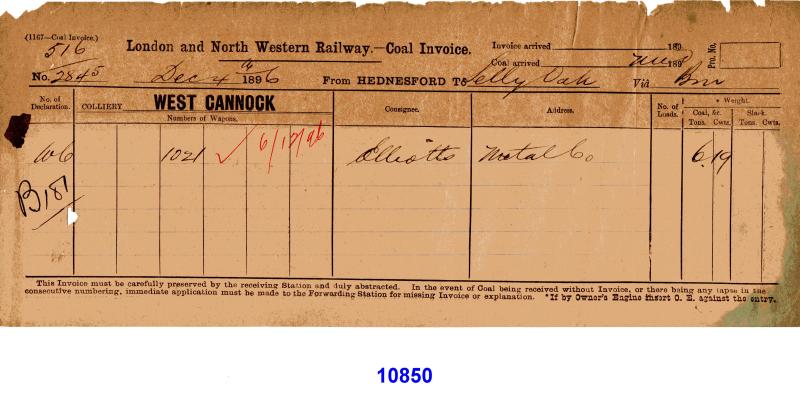 (1167—Coal Invoice.)
516
London and North Western Railway.—Coal Invoice.
Invoice arrived 189
Coal arrived 189
Pro. No.
No. 2845 Dec 4th 1896 From HEDNESFORD To Selly Oak Via Bm
No. of Declaration. COLLIERY WEST CANNOCK Consignee. Address. No. of Loads. * Weight.
Numbers of Wagons. Coal, &c. Slack.
Tons. Cwts. Tons. Cwts.
W6 1021 ✓ 6/12/96 Elliotts Metal Co 6 19
B181
This Invoice must be carefully preserved by the receiving Station and duly abstracted. In the event of Coal being received without Invoice, or there being any lapse in the
consecutive numbering, immediate application must be made to the Forwarding Station for missing Invoice or explanation. *If by Owner's Engine insert O. E. against the entry.
10850